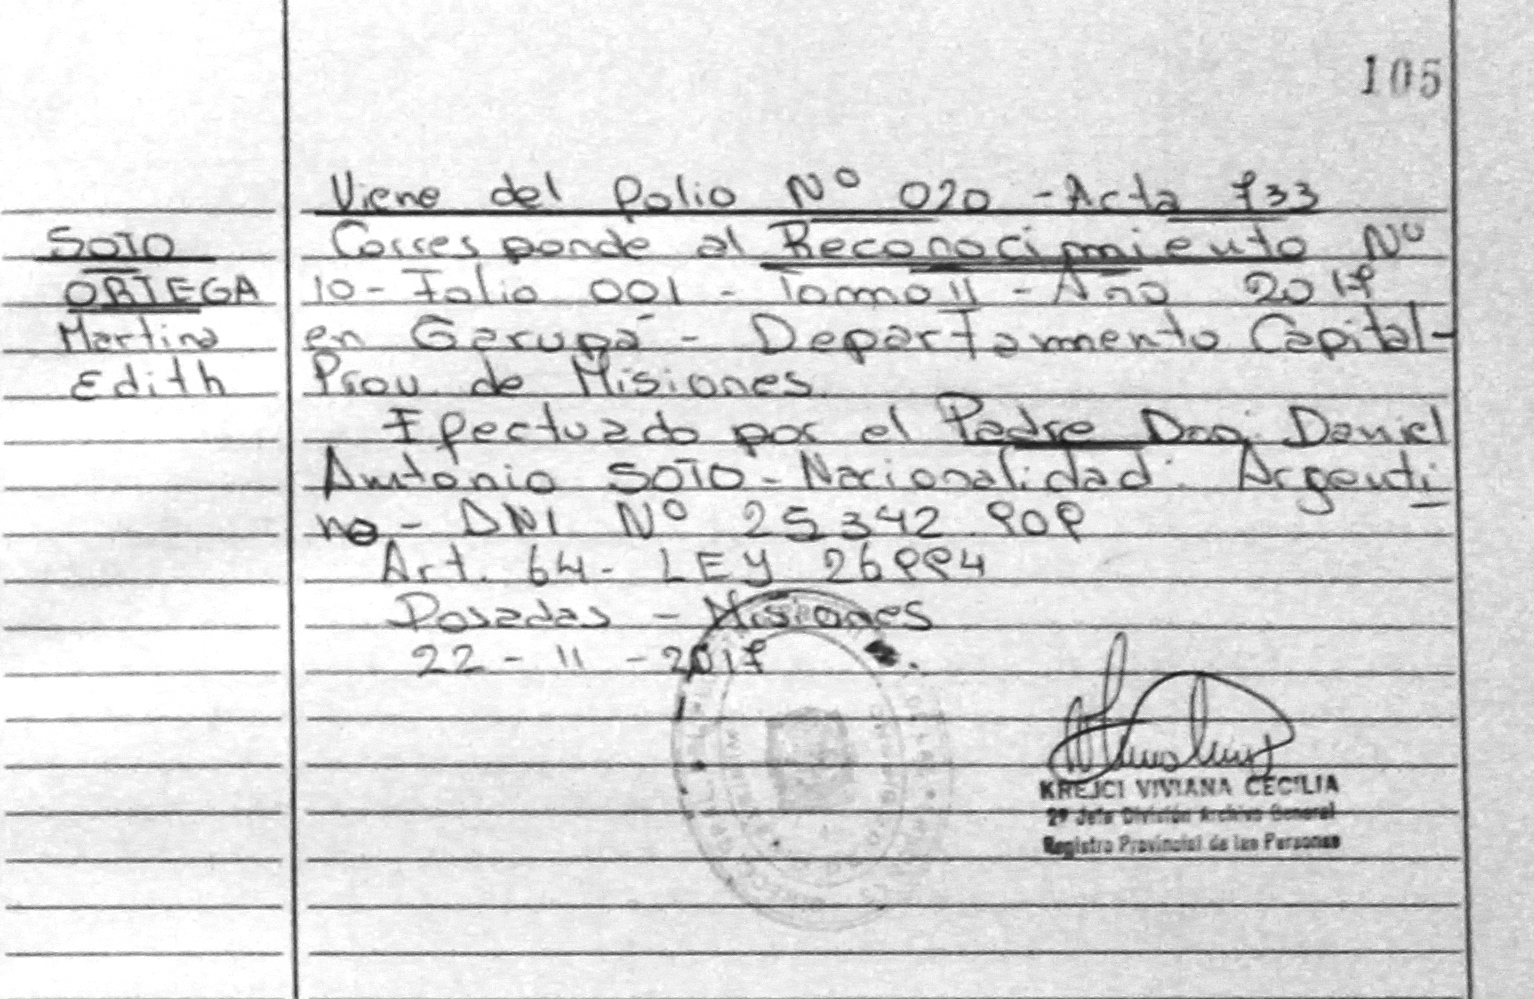 105
Viene del folio Nº 020 - Acta 733
SOTO
ORTEGA
Martina
Edith
Corresponde al Reconocimiento Nº
10 - Folio 001 - Tomo II - Año 2017
en Garupá - Departamento Capital -
Prov. de Misiones
Efectuado por el Padre Don: Daniel
Antonio SOTO - Nacionalidad: Argenti
no - DNI Nº 25342909
Art. 64 - LEY 26994
Posadas - Misiones
22 - 11 - 2017
KREJCI VIVIANA CECILIA
2º Jefe División Archivo General
Registro Provincial de las Personas